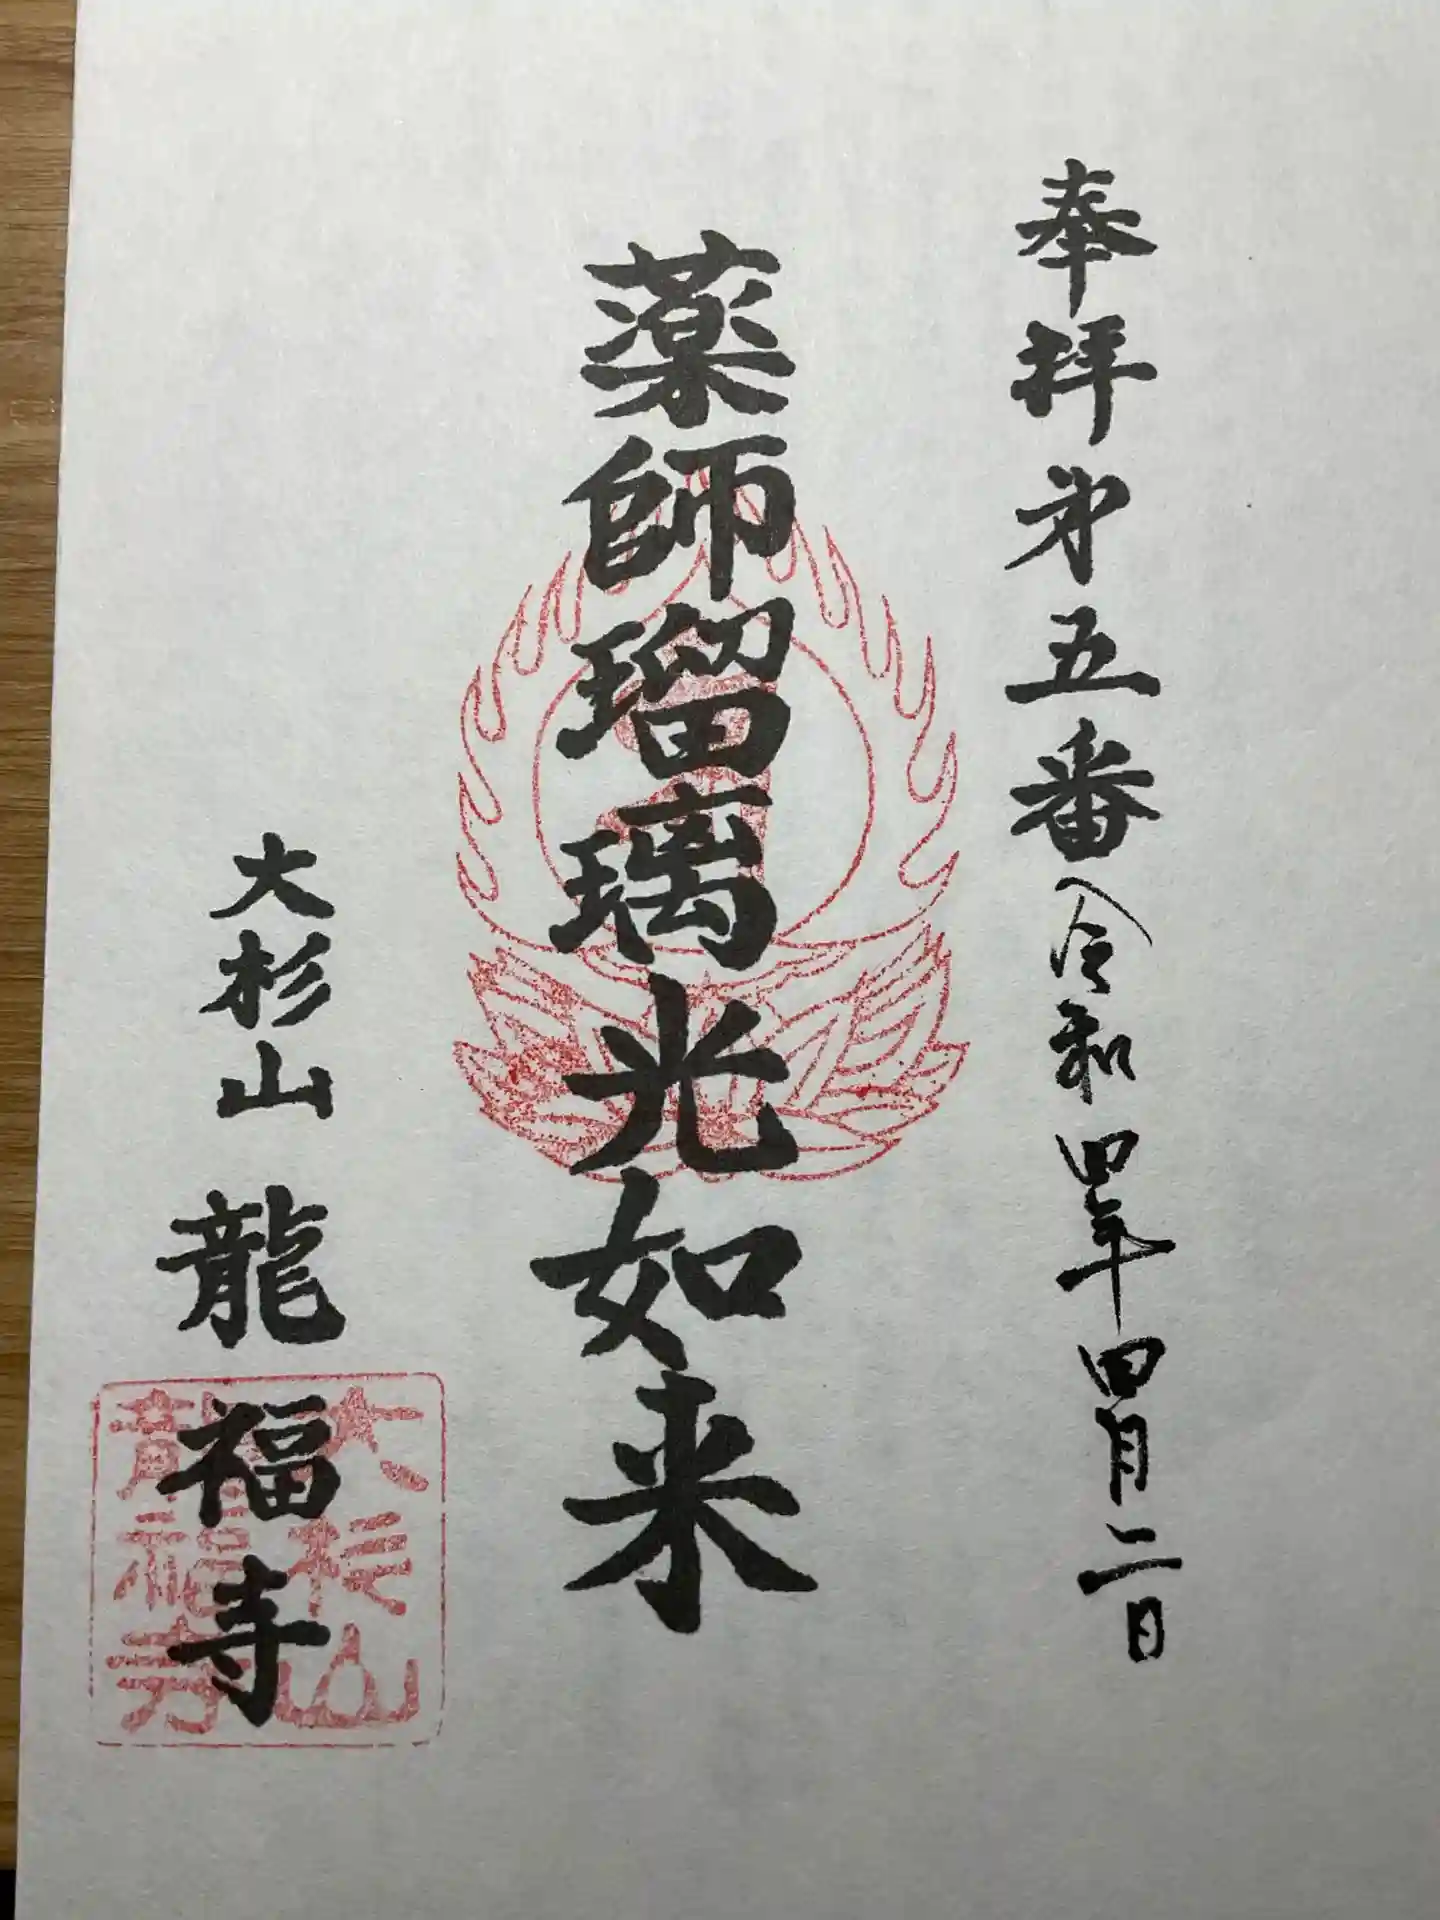 奉拝第五番令和四年四月二日
薬師瑠璃光如来
大杉山 龍福寺
大杉山
龍福寺